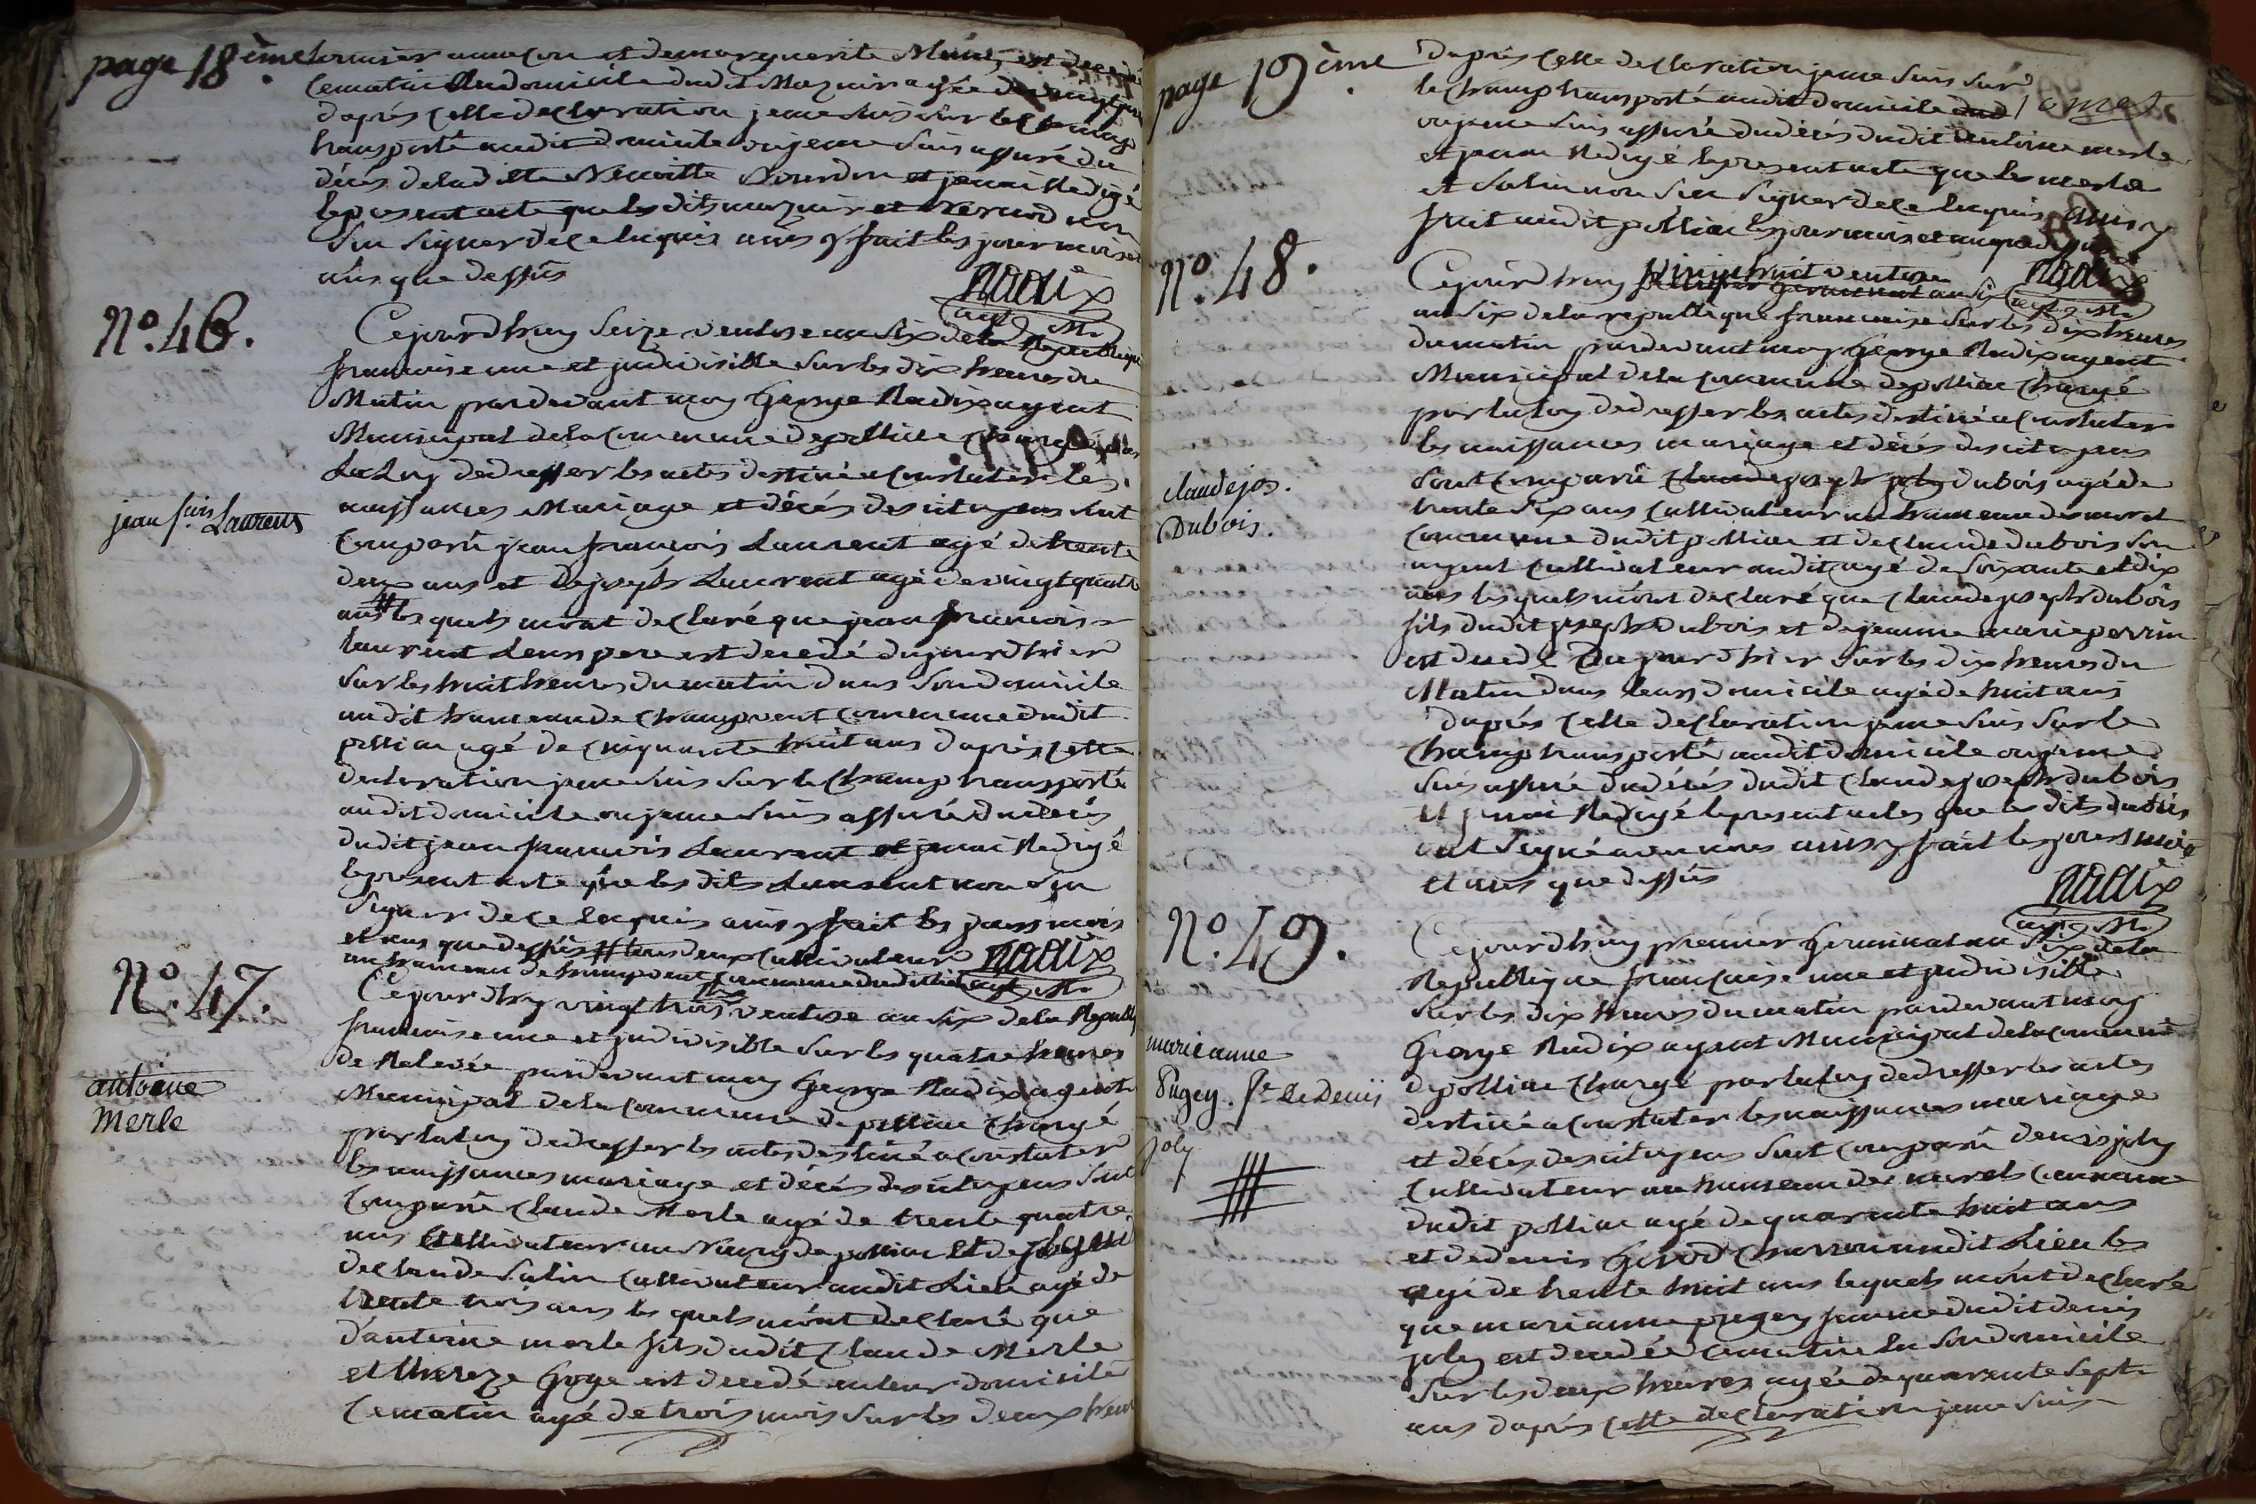 page 18ème
fournier macon et de marguerite
ce matin au domicile dudit Mazuir agée de
d'aprés cette declaration je me suis sur le champ
transporté audit domicile ou je me suis assuré du
décés de laditte Bourdon et jenai Redigé
le present acte que les dits mazuir et non
Su signer de ce Enquis ainsy fait les jour mois et
ans que dessus
Nadix
agt Mal
No. 46.
Cejourdhuy Seize ventose an Six de la Republique
francaise une et jndivisible Sur les dix heures du
Matin pardevant moy George Nadix agent
Municipal de la Commune de polliat Chargé
La Loy de dresser les actes destiné a Constater les
naissances Mariage et décés des citoyens sont
jean fcois Laurent
Comparû jean francois Laurent agé de trente
deux ans et de joseph Laurent agé de vingt quatre
ans # les quels m'ont declaré que jean francois
Laurent Leurs pere est decedé du jour d'hier
Sur les huit heures du matin dans Son domicile
audit hameau de Champvent Commune dudit
polliat agé de Cinquante huit ans d'aprés cette
declaration je me suis sur le Champ transporté
audit domicile ou je me suis assuré du decés
dudit jean francois Laurent et jenai Redigé
le present acte que les dits Laurent non Su
Signer de ce Enquis ainsy fait les jours mois
et ans que dessus # tous deux Cultivateurs
au hameau de Champvent Commune dudit
Nadix
agt Mal
No. 47.
Cejourdhuy vingt trois ventose an Six de la Republ
francaise une et jndivisible Sur les quatre heures
de Relevée pardevant moy George Nadix agent
antoine
Merle
Municipal de la Commune de polliat Chargé
par la loy de dresser les actes destiné a Constater
les naissances mariage et décés des citoyens Sont
Comparû Claude Merle agé de trente quatre
ans Cultivateur au Bourg de polliat Et de
de Claude Salin Cultivateur audit Lieu agé de
trente trois ans les quels m'ont declaré que
d'antoine merle fils dudit Claude Merle
et thereze Goge est decedé en leur domicile
Ce matin agé de trois mois Sur les deux heur
page 19ème
d'aprés cette declaration je me suis sur
le champ transporté audit domicile
ou je me suis assuré du décés dudit antoine merle
et jenai Redigé le present acte que les merle
et Salin non Su Signer de ce Enquis ainsy
fait audit polliat les jour mois et an que dessus
Nadix
agt Mal
No. 48.
Cejourdhuy vingt huit ventose
an Six de la republique francaise Sur les dix heures
du matin pardevant moy George Nadix agent
Municipal de la Commune de polliat Chargé
par la loy de dresser les actes destiné a Constater
les naissances mariage et décés des citoyens
claude jos.
Dubois.
Sont Comparû Claude joseph Dubois agé de
trente Six ans Cultivateur au hameau des morel
Commune dudit polliat et de Claude dubois Son
agent Cultivateur audit agé de Soixante et dix
ans les quels m'ont declaré que Claude joseph dubois
fils dudit joseph Dubois et de jeanne marie perrin
est decedé du jour d'hier Sur les dix heures du
Matin dans leurs domicile agé de huit ans
d'aprés cette declaration je me suis sur le
Champ transporté audit domicile ou je me
Suis assuré du décés dudit Claude joseph dubois
et jenai Redigé le present actes que les dits dubois
ont Signé avec nous ainsy fait les jours mois
et ans que dessus
Nadix
agt Mal
No. 49.
Cejourdhuy premier Germinal an Six de la
Republique francaise une et jndivisible
Sur les dix heures du matin pardevant moy
marie anne
Pugey. fe de Denis
joly
George Nadix agent Municipal de la Commune
de polliat Chargé par la loy de dresser les actes
destiné a Constater les naissances mariage
et décés des citoyens Sont Comparû denis joly
Cultivateur au hameau des morels Commune
dudit polliat agé de quarante huit ans
et de denis Girod Charron audit Lieu les
agé de trente huit ans lequels m'ont declaré
que marianne pugey femme dudit denis
joly est decedée ce matin En Son domicile
Sur les deux heures agée de quarente Sept
ans d'aprés cette declaration je me suis